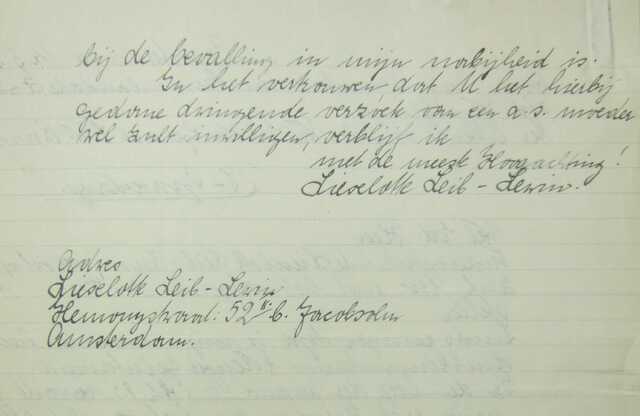 bij de bevalling in mijn nabijheid is.
In het vertrouwen, dat U het hierbij
gedane dringende verzoek van een a.s. moeder
wel zult inwilligen, verblijf ik
met de meest Hoogachting!
Lieselotte Leib-Lewin.
Adres
Lieselotte Leib-Lewin
Hemonystraat: 52 II b. Jacobsohn
Amsterdam.